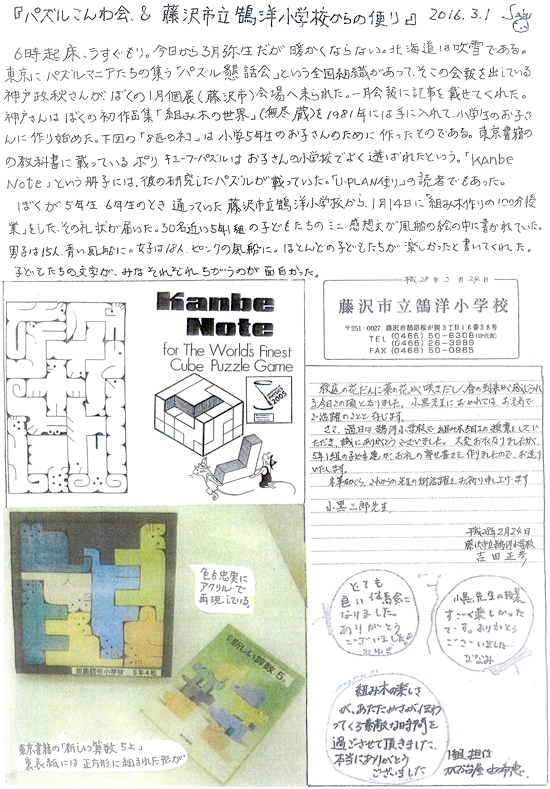 『パズルこんわ会、& 藤沢市立鵠洋小学校からの便り』 2016.3.1
6時起床、うすぐもり。今日から3月弥生だが暖かくならない。北海道は吹雪である。
東京にパズルマニアたちの集う「パズル懇話会」という全国組織があって、そこの会報を出している
神戸政秋さんがぼくの1月個展(藤沢市)会場へ来られた。一月会報に記事を載せてくれた。
神戸さんはぼくの初作品集「組み木の世界」(無尽蔵)を1981年には手に入れて、小学生のお子さ
んに作り始めた。下図の「8匹のネコ」は小学5年生のお子さんのために作ったものである。東京書籍の
の教科書に載っているポリキューブパズルはお子さんの小学校でよく遊ばれたという。「Kanbe
Note」という冊子には、彼の研究したパズルが載っていた。「U-PLAN便り」の読者でもあった。
ぼくが5年生・6年生のとき通っていた藤沢市立鵠洋小学校から、1月14日に「組み木作りの100分授
業」をした、その礼状が届いた。30名近い5年1組の子どもたちのミニ感想文が風船の絵の中に書かれていた。
男子は15人、青い風船に。女子は18人、ピンクの風船に。ほとんどの子どもたちが楽しかったと書いてくれた。
子どもたちの文字が、みなそれぞれちがうのが面白かった。
Kanbe
Note
for The Worlds Finest
Cube Puzzle Game
2005
平成28年2月24日
藤沢市立鵠洋小学校
〒251-0027 藤沢市鵠沼桜が岡3丁目16番38号
TEL (0466) 50-8308
(0466) 26-3989
FAX (0466) 50-0965
校庭の花だんに菜の花が咲きだし、春の到来が感じられ
る今日この頃となりました。小黒先生におかれては、お元気で
ご活躍のことと存じます。
さて、過日は鵠洋小学校で組み木作りの授業をしていた
だき、誠にありがとうございました。大変おそくなりましたが、
5年1組の子ども達からお礼の寄せ書きを作りましたので、お送り
いたします。
末筆ながら、これからの先生の御活躍をお祈り申し上げます
小黒三郎先生
平成28年2月24日
藤沢市立鵠洋小学校
吉田正彦
色も忠実に
アクリルで
再現している。
田園調布小学校 5年4組
新しい算数 5上
東京書籍の「新しい算数5上」
裏表紙には正方形に組まれた形が
とても
良い体験に
なりました。
ありがとう
ございました。
みゆき
小黒先生の授業
すごく楽しかった
です。ありがとう
ございました
ななみ
組み木の楽しさ
が、あたたかさが伝わ
ってくる素敵な時間を
過ごさせて頂きました。
本当にありがとう
ございました
1組 担任